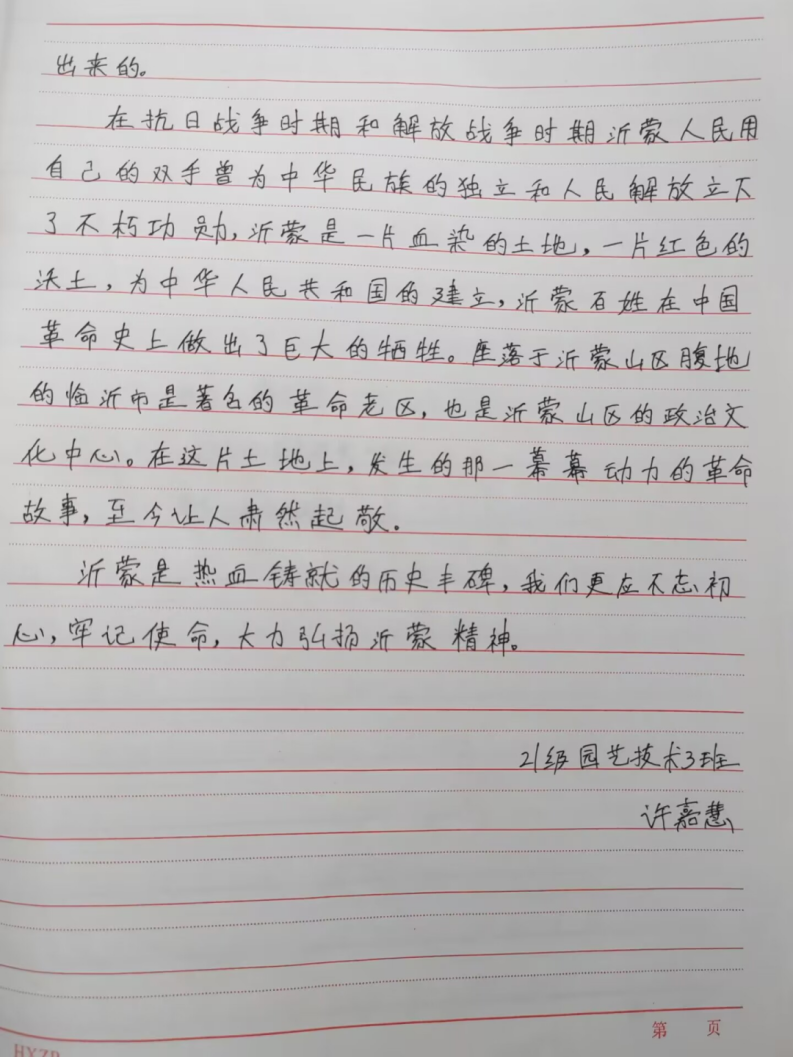 出来的。
在抗日战争时期和解放战争时期沂蒙人民用
自己的双手曾为中华民族的独立和人民解放立下
了不朽功勋，沂蒙是一片血染的土地，一片红色的
沃土，为中华人民共和国的建立，沂蒙百姓在中国
革命史上做出了巨大的牺牲。座落于沂蒙山区腹地
的临沂市是著名的革命老区，也是沂蒙山区的政治文
化中心。在这片土地上，发生的那一幕幕动力的革命
故事，至今让人肃然起敬.
沂蒙是热血铸就的历史丰碑，我们更应不忘初
心，牢记使命，大力弘扬沂蒙精神。
21级园艺技术3班
许嘉慧
第 页
HXZP